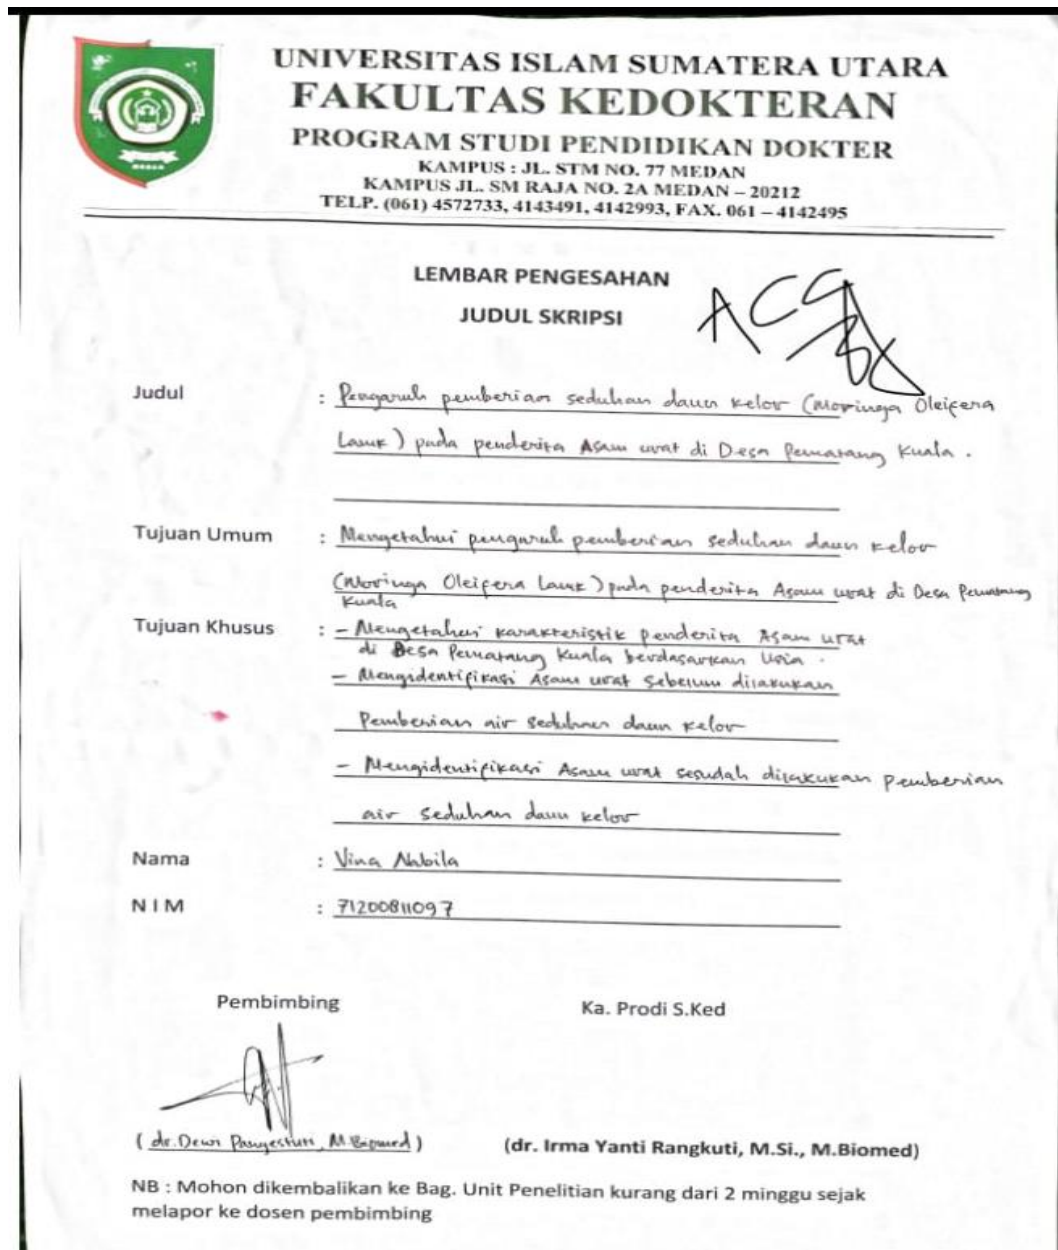 UNIVERSITAS ISLAM SUMATERA UTARA
FAKULTAS KEDOKTERAN
PROGRAM STUDI PENDIDIKAN DOKTER
KAMPUS : JL. STM NO. 77 MEDAN
KAMPUS JL. SM RAJA NO. 2A MEDAN – 20212
TELP. (061) 4572733, 4143491, 4142993, FAX. 061 – 4142495
MEDAN
LEMBAR PENGESAHAN
JUDUL SKRIPSI
ACC
Judul : Pengaruh pemberian seduhan daun kelor (Moringa Oleifera
Lamk) pada penderita Asam urat di Desa Pematang Kuala .
Tujuan Umum : Mengetahui pengaruh pemberian seduhan daun kelor
(Moringa Oleifera Lamk) pada penderita Asam urat di Desa Pematang
Kuala
Tujuan Khusus : - Mengetahui karakteristik penderita Asam urat
di Desa Pematang Kuala berdasarkan Usia .
- Mengidentifikasi Asam urat sebelum dilakukan
Pemberian air seduhan daun kelor
- Mengidentifikasi Asam urat sesudah dilakukan pemberian
air seduhan daun kelor
Nama : Vina Nabila
N I M : 71200811097
Pembimbing Ka. Prodi S.Ked
( dr. Dewi Pangestuti, M.Biomed ) (dr. Irma Yanti Rangkuti, M.Si., M.Biomed)
NB : Mohon dikembalikan ke Bag. Unit Penelitian kurang dari 2 minggu sejak
melapor ke dosen pembimbing